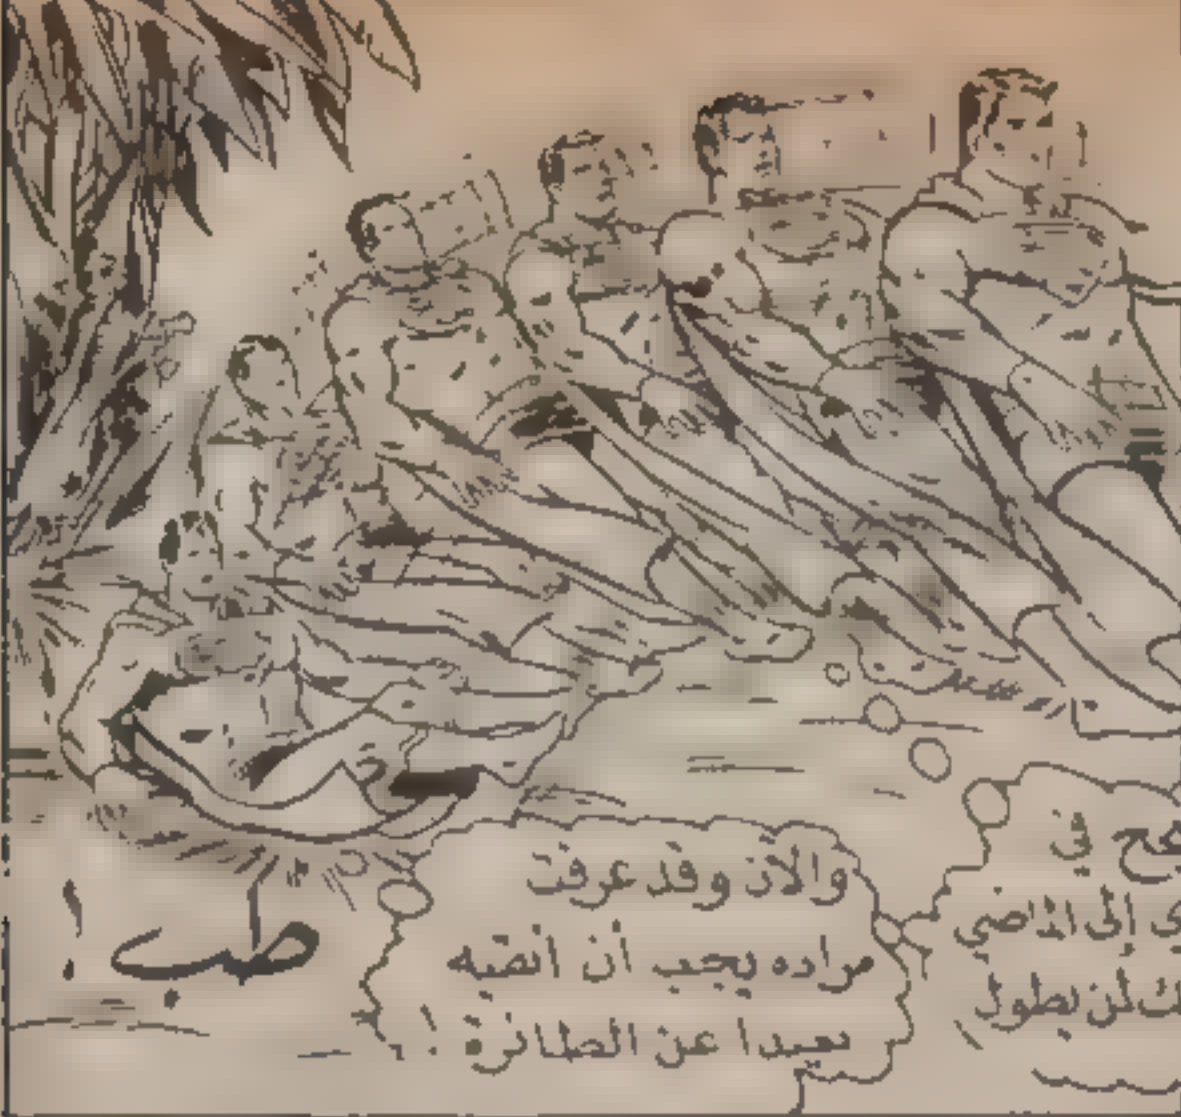 في
إلى الماضي
لن يطول
والآن وقد عرفت
مراده يجب أن أقصيه
بعيدا عن الطائرة !
طب !